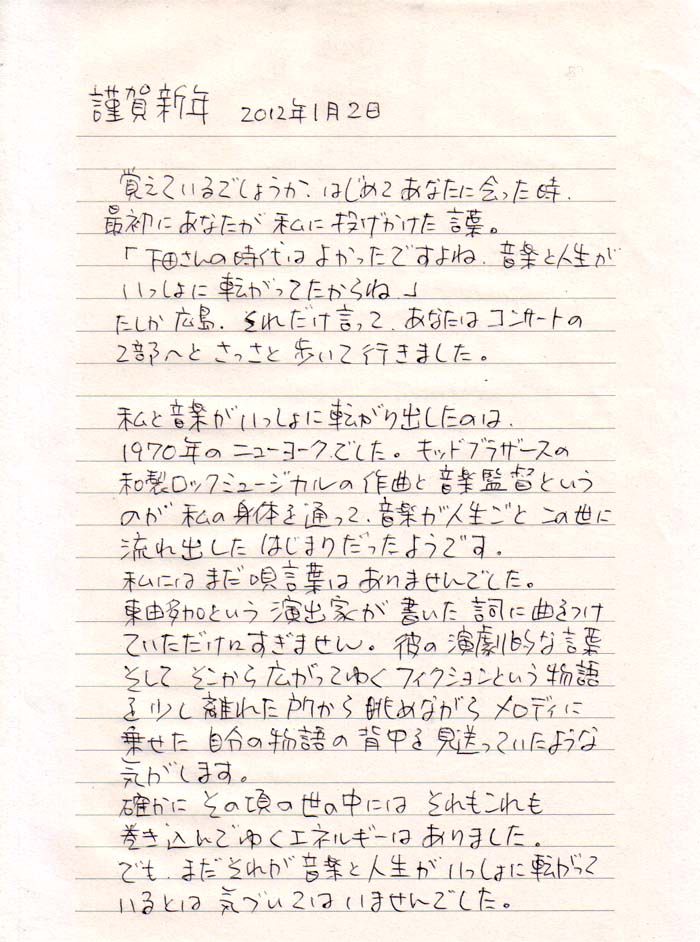 謹賀新年 2012年1月2日
覚えているでしょうか、はじめてあなたに会った時、
最初にあなたが私に投げかけた言葉。
「下田さんの時代はよかったですよね、音楽と人生が
いっしょに転がってたからね」
たしか広島、それだけ言って、あなたはコンサートの
2部へとさっさと歩いて行きました。
私と音楽がいっしょに転がり出したのは、
1970年のニューヨークでした。キッドブラザースの
和製ロックミュージカルの作曲と音楽監督という
のが私の身体を通って、音楽が人生ごとこの世に
流れ出したはじまりだったようです。
私にはまだ唄言葉はありませんでした。
東由多加という演出家が書いた詞に曲をつけ
ていただけにすぎません。彼の演劇的な言葉
そしてそこから広がってゆくフィクションという物語
を少し離れた所から眺めながらメロディに
乗せた自分の物語の背中を見送っていたような
気がします。
確かにその頃の世の中にはそれもこれも
巻き込んでゆくエネルギーはありました。
でも、まだそれが音楽と人生がいっしょに転がって
いるとは気づいてはいませんでした。